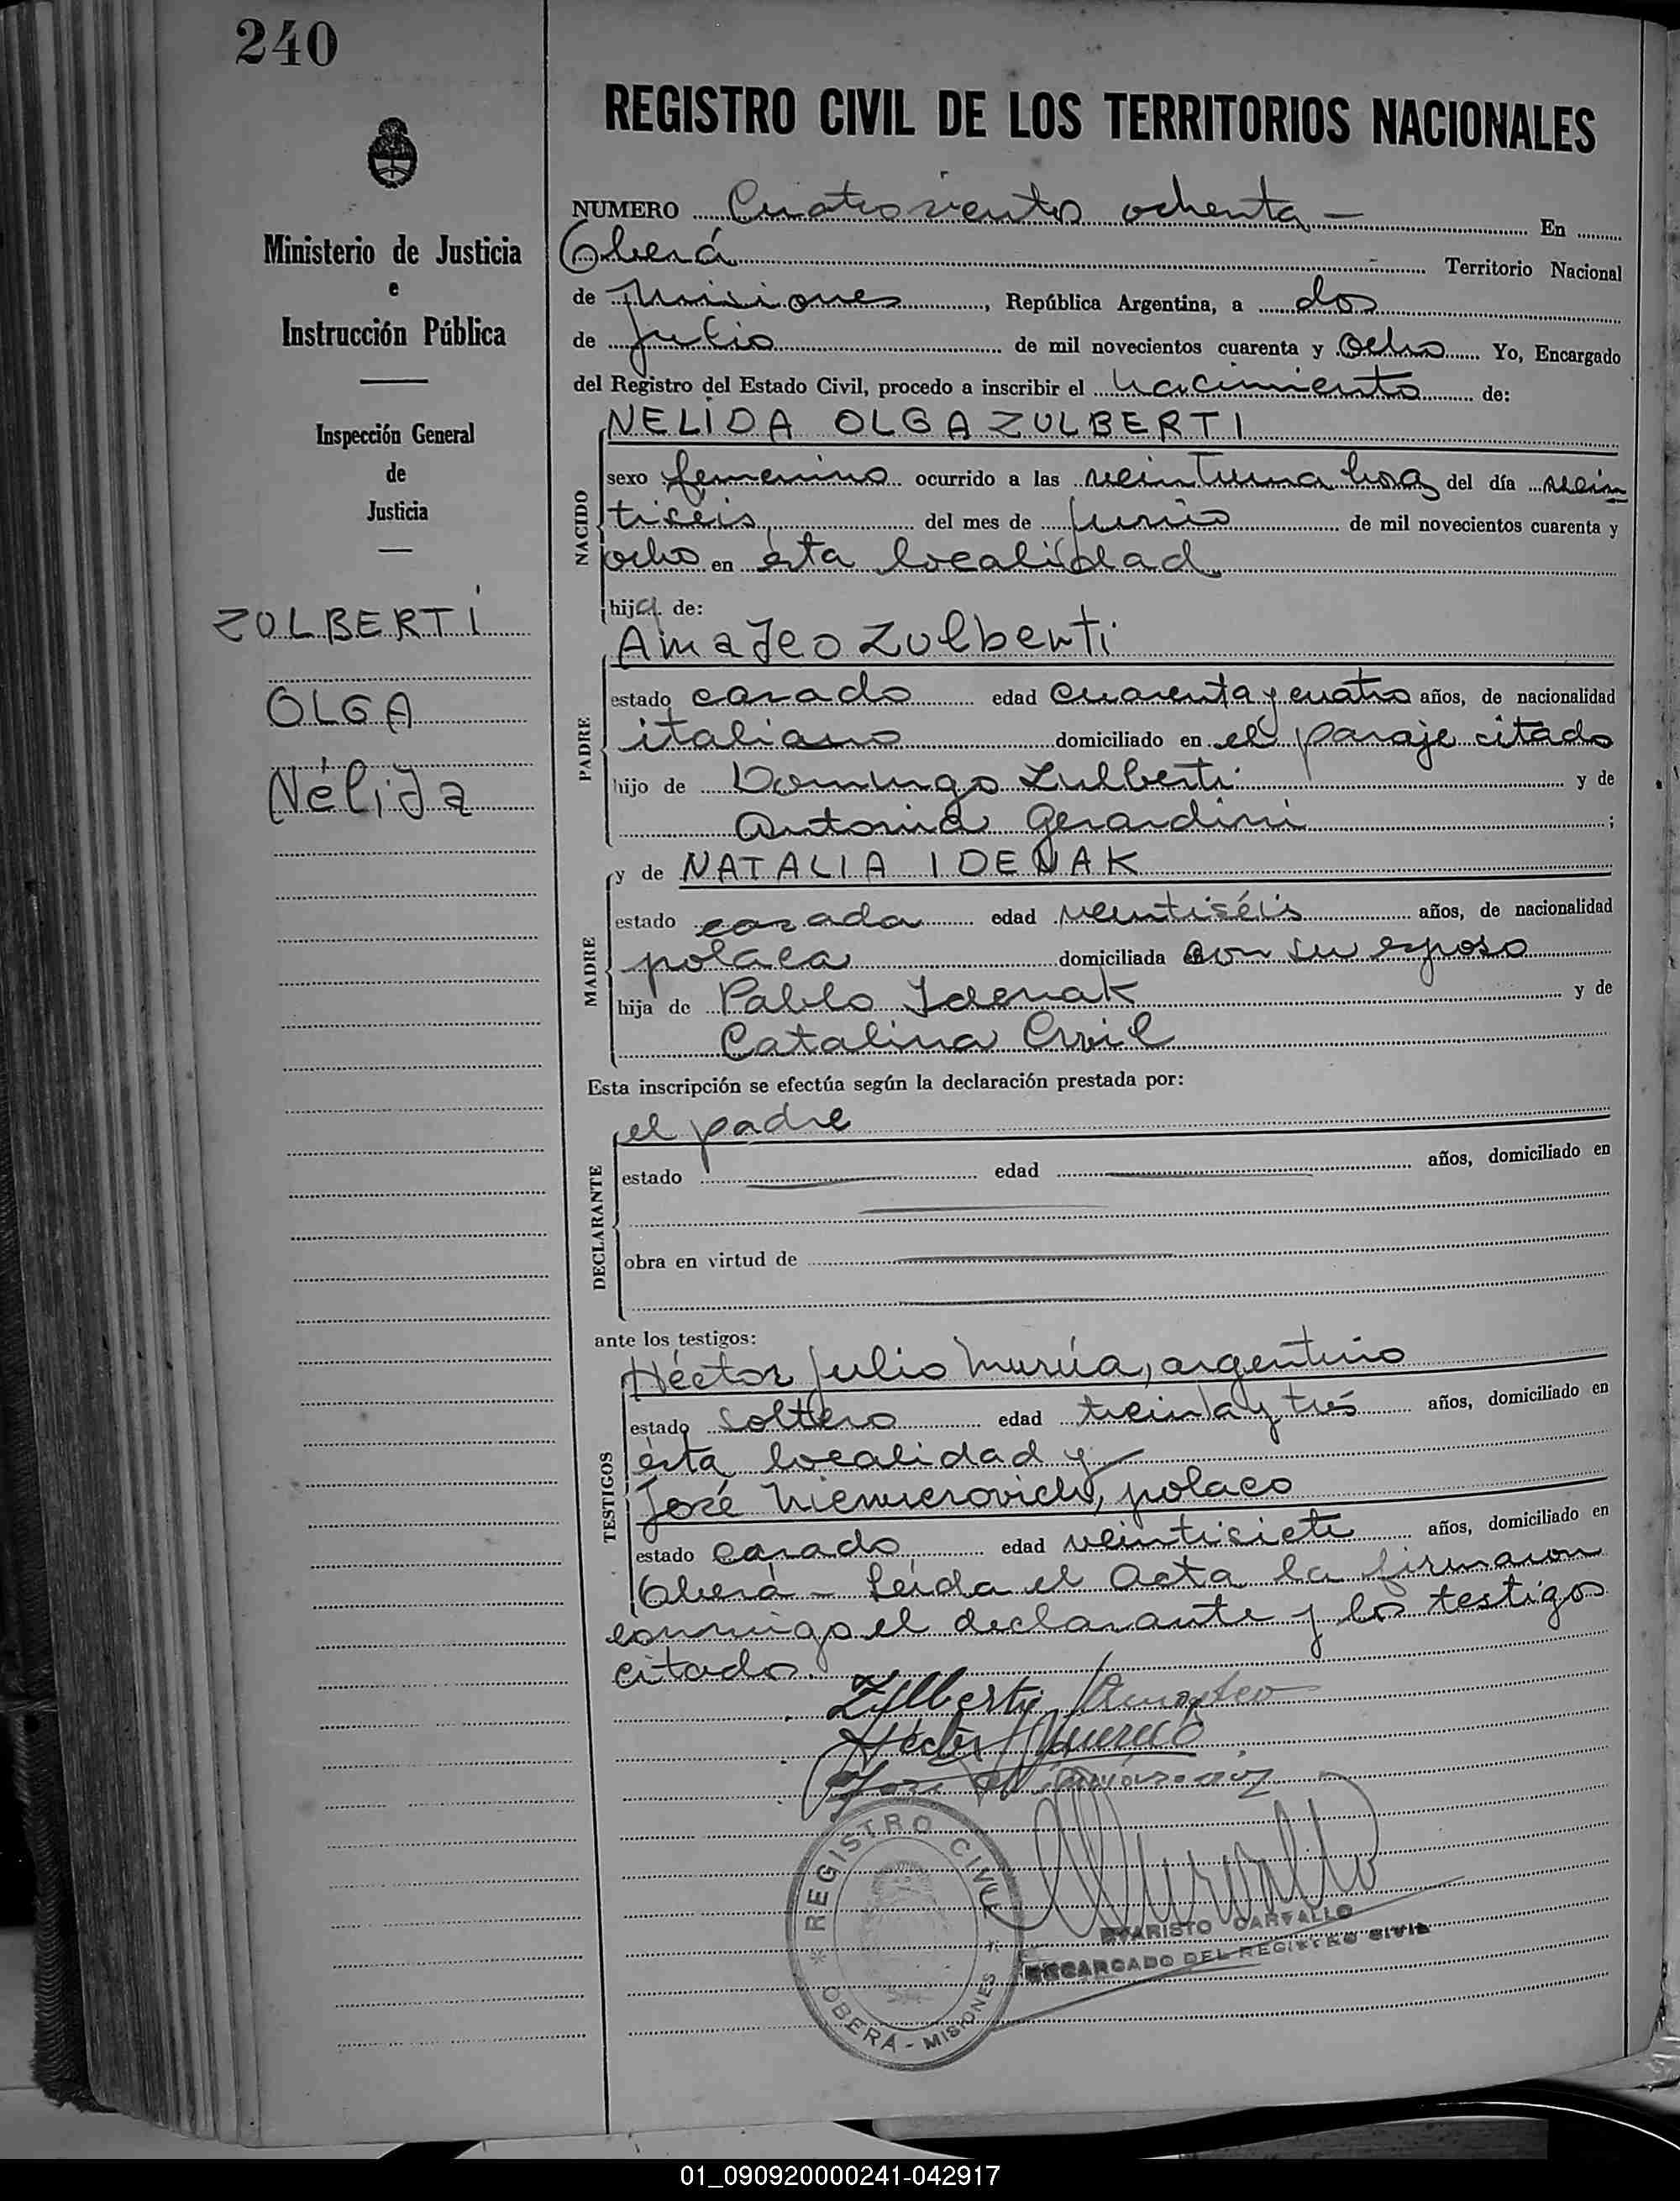 240
Ministerio de Justicia
e
Instrucción Pública
Inspección General
de
Justicia
ZULBERTI
OLGA
Nélida
REGISTRO CIVIL DE LOS TERRITORIOS NACIONALES
NUMERO Cuatrocientos ochenta — En
Oberá Territorio Nacional
de Misiones, República Argentina, a dos
de Julio de mil novecientos cuarenta y ocho Yo, Encargado
del Registro del Estado Civil, procedo a inscribir el nacimiento de:
NELIDA OLGA ZULBERTI
NACIDO
sexo femenino ocurrido a las veintiuna hora del día vein
tiséis del mes de junio de mil novecientos cuarenta y
ocho en ésta localidad
hija de:
Amadeo Zulberti
PADRE
estado casado edad cuarenta y cuatro años, de nacionalidad
italiano domiciliado en el paraje citado
hijo de Domingo Zulberti y de
Antonia Gerardini ;
y de NATALIA IDENAK
MADRE
estado casada edad veintiséis años, de nacionalidad
polaca domiciliada con su esposo
hija de Pablo Idenak y de
Catalina
Esta inscripción se efectúa según la declaración prestada por:
el padre
DECLARANTE
estado edad años, domiciliado en
obra en virtud de
ante los testigos:
Héctor Julio Murúa, argentino
TESTIGOS
estado soltero edad treinta y trés años, domiciliado en
ésta localidad y
José Niemierovich, polaco
estado casado edad veintisiete años, domiciliado en
Oberá — Leída el Acta la firmaron
conmigo el declarante y los testigos
citados.
Zulberti Amadeo
Héctor J Murúa
José
REGISTRO CIVIL
OBERÁ - MISIONES
EVARISTO CARVALLO
ENCARGADO DEL REGISTRO CIVIL
01_090920000241-042917